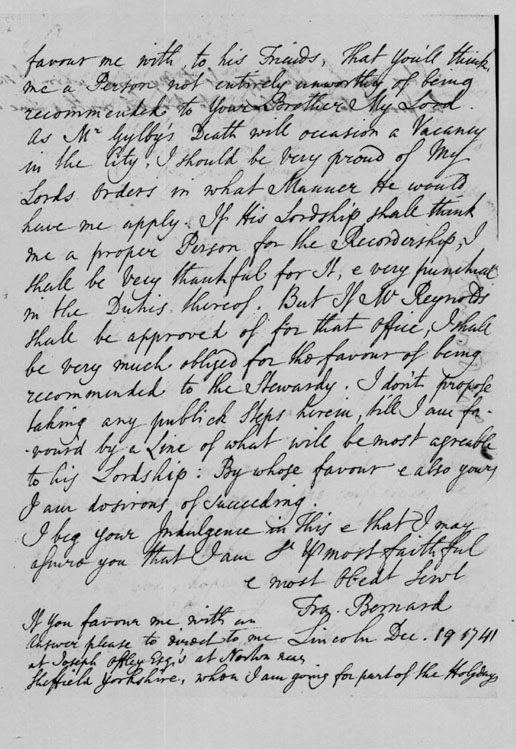 favour me with, to his Friends, that you'll think
me a Person not entirely unworthy of being
recommended to Your Brother My Lord.
As Mr Gylby's Death will occasion a Vacancy
in the City, I should be very proud of My
Lords Orders in what Manner He would
have me apply. If His Lordship shall think
me a proper Person for the Recordership, I
shall be very thankful for It, & very punctual
in the Duties thereof. But If Mr Reynolds
shall be approved of for that Office, I shall
be very much obliged for the favour of being
recommended to the Stewardy. I don't propose
taking any publick Steps herein, till I am fa-
-vour'd by a Line of what will be most agreable
to his Lordship: By whose favour & also yours
I am dosirous of succeeding.
I beg your Indulgence in this & that I may
assure you that I am Sr Yr most faithful
& most Obedt Servt
Fra. Bernard
Lincoln Dec. 19 1741
If you favour me with an
Answer please to direct to me
at Joseph Offley Esqr's at Norton near
Sheffield Yorkshire, whon I am going for part of the Holydays